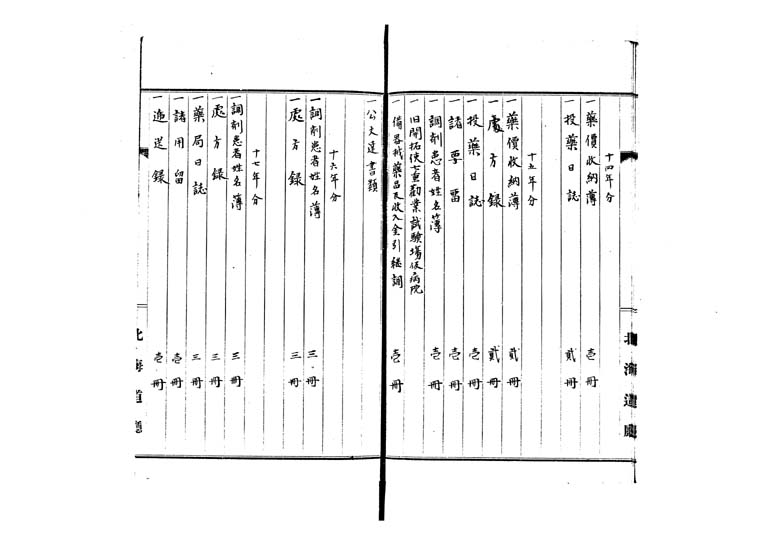 十四年分
一藥價收納薄 壱冊
一投藥日誌 貳冊
十五年分
一藥價收納薄 貳冊
一處方録 貳冊
一投藥日誌 壱冊
一諸要留 壱冊
一調剤患者姓名簿 壱冊
一旧開拓使七重勸業試験場仮病院
備器械藥品及收入金引継調 壱冊
一公文達書類
十六年分
一調剤患者姓名薄 三冊
一處方録 三冊
十七年分
一調剤患者姓名薄 三冊
一處方録 三冊
一藥局日誌 三冊
一諸用留 壱冊
一逓送録 壱冊
北海道廳
北海道廳